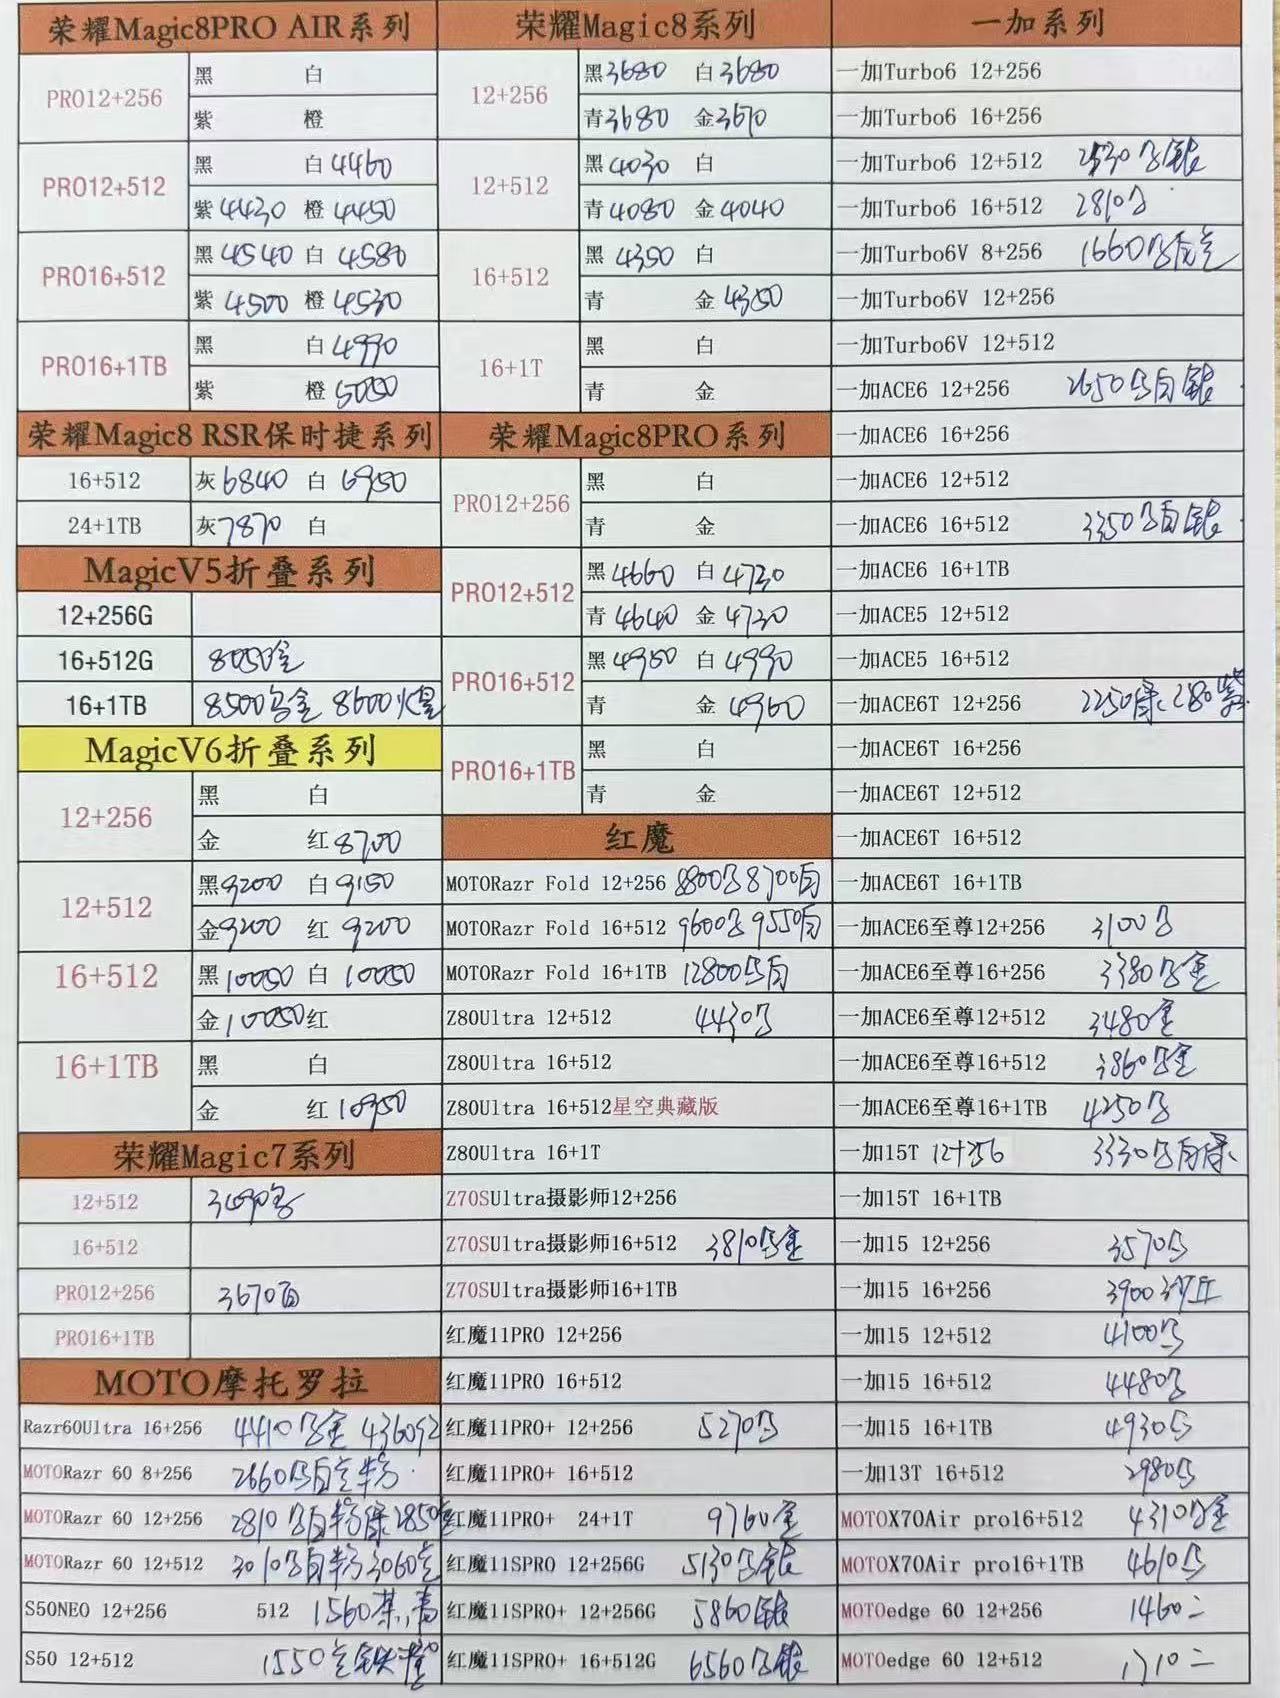 荣耀Magic8PRO AIR系列
PRO12+256
黑 白
紫 橙
PRO12+512
黑 白4460
紫4430 橙4450
PRO16+512
黑4540 白4580
紫4500 橙4530
PRO16+1TB
黑 白4990
紫 橙5050
荣耀Magic8 RSR保时捷系列
16+512 灰6840 白6950
24+1TB 灰7870 白
MagicV5折叠系列
12+256G
16+512G 8050金
16+1TB 8500
MagicV6折叠系列
12+256
黑 白
金 红8700
12+512
黑9200 白9150
金9200 红9200
16+512
黑10050 白10050
金10050红
16+1TB
黑 白
金 红10950
荣耀Magic7系列
12+512
16+512
PRO12+256 3670白
PRO16+1TB
MOTO摩托罗拉
Razr60Ultra 16+256 4410 4360红
MOTORazr 60 8+256 2660
MOTORazr 60 12+256 2810 2850
MOTORazr 60 12+512 3010 3060
S50NEO 12+256 512 1560
S50 12+512 1550
荣耀Magic8系列
12+256
黑3680 白3680
青3680 金3670
12+512
黑4030 白
青4080 金4040
16+512
黑4350 白
青 金4350
16+1T
黑 白
青 金
荣耀Magic8PRO系列
PRO12+256
黑 白
青 金
PRO12+512
黑4660 白4730
青4640 金4730
PRO16+512
黑4950 白4990
青 金4960
PRO16+1TB
黑 白
青 金
红魔
MOTORazr Fold 12+256 8800 8700白
MOTORazr Fold 16+512 9600 9550白
MOTORazr Fold 16+1TB 12800
Z80Ultra 12+512 4430
Z80Ultra 16+512
Z80Ultra 16+512星空典藏版
Z80Ultra 16+1T
Z70SUltra摄影师12+256
Z70SUltra摄影师16+512 3810
Z70SUltra摄影师16+1TB
红魔11PRO 12+256
红魔11PRO 16+512
红魔11PRO+ 12+256 5270
红魔11PRO+ 16+512
红魔11PRO+ 24+1T 9760金
红魔11SPRO 12+256G 5130
红魔11SPRO+ 12+256G 5860银
红魔11SPRO+ 16+512G 6560
一加系列
一加Turbo6 12+256
一加Turbo6 16+256
一加Turbo6 12+512 2530
一加Turbo6 16+512 2810
一加Turbo6V 8+256 1660
一加Turbo6V 12+256
一加Turbo6V 12+512
一加ACE6 12+256 2650
一加ACE6 16+256
一加ACE6 12+512
一加ACE6 16+512 3350
一加ACE6 16+1TB
一加ACE5 12+512
一加ACE5 16+512
一加ACE6T 12+256 2250
一加ACE6T 16+256
一加ACE6T 12+512
一加ACE6T 16+512
一加ACE6T 16+1TB
一加ACE6至尊12+256 3100
一加ACE6至尊16+256 3380
一加ACE6至尊12+512 3480金
一加ACE6至尊16+512 3860
一加ACE6至尊16+1TB 4250
一加15T 12+256 3330
一加15T 16+1TB
一加15 12+256 3570
一加15 16+256 3900
一加15 12+512 4100
一加15 16+512 4480
一加15 16+1TB 4930
一加13T 16+512 2980
MOTOX70Air pro16+512 4310
MOTOX70Air pro16+1TB 4610
MOTOedge 60 12+256 1460二
MOTOedge 60 12+512 1710二